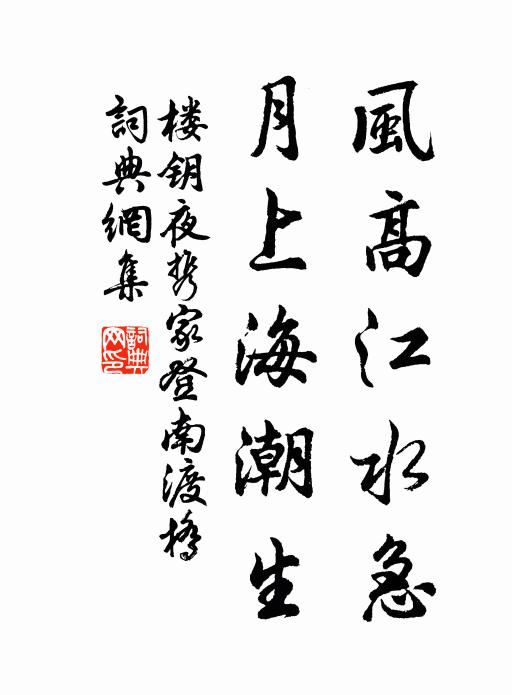 風高江水急
月上海潮生
楼钥夜携家登南渡橋
詞典網集
詞典网印